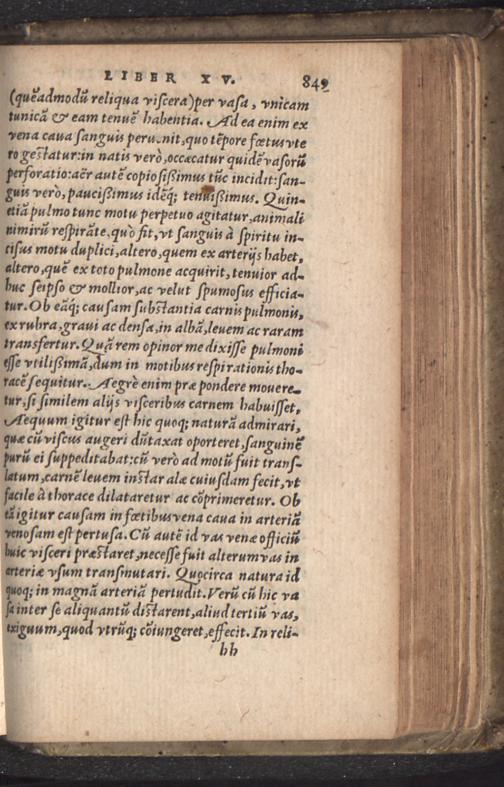 LIBER XV. 849
(quēadmodū reliqua viscera) per vasa, vnicam
tunicā & eam tenuē habentia. Ad ea enim ex
vena caua sanguis peruenit, quo tēpore fœtus vte
ro gestatur: in natis verò, occæcatur quidē vasorū
perforatio: aër autē copiosißimus tūc incidit: san-
guis verò, paucißimus idēq; tenuißimus. Quin-
etiā pulmo tunc motu perpetuo agitatur, animali
nimirū respirāte. quò fit, vt sanguis à spiritu in-
cisus motu duplici, altero, quem ex arterijs habet,
altero, quē ex toto pulmone acquirit, tenuior ad-
huc seipso & mollior, ac velut spumosus efficia-
tur. Ob eāq; causam substantia carnis pulmonis,
ex rubra, graui ac densa, in albā, leuem ac raram
transfertur. Quā rem opinor me dixisse pulmoni
esse vtilißimā, dum in motibus respirationis tho-
racē sequitur. Aegrè enim præ pondere mouere-
tur, si similem alijs visceribus carnem habuisset.
Aequum igitur est hic quoq; naturā admirari,
quæ cū viscus augeri dūtaxat oporteret, sanguinē
purū ei suppeditabat: cū verò ad motū fuit trans-
latum, carnē leuem instar alæ cuiusdam fecit, vt
facile à thorace dilataretur ac cōprimeretur. Ob
eā igitur causam in fœtibus vena caua in arteriā
venosam est pertusa. Cū autē id vas venæ officiū
huic visceri præstaret, necesse fuit alterum vas in
arteriæ vsum transmutari. Quocirca natura id
quoq; in magnā arteriā pertudit. Verū cū hic va
sa inter se aliquantū distarent, aliud tertiū vas,
exiguum, quod vtrūq; cōiungeret, effecit. In reli-
hh